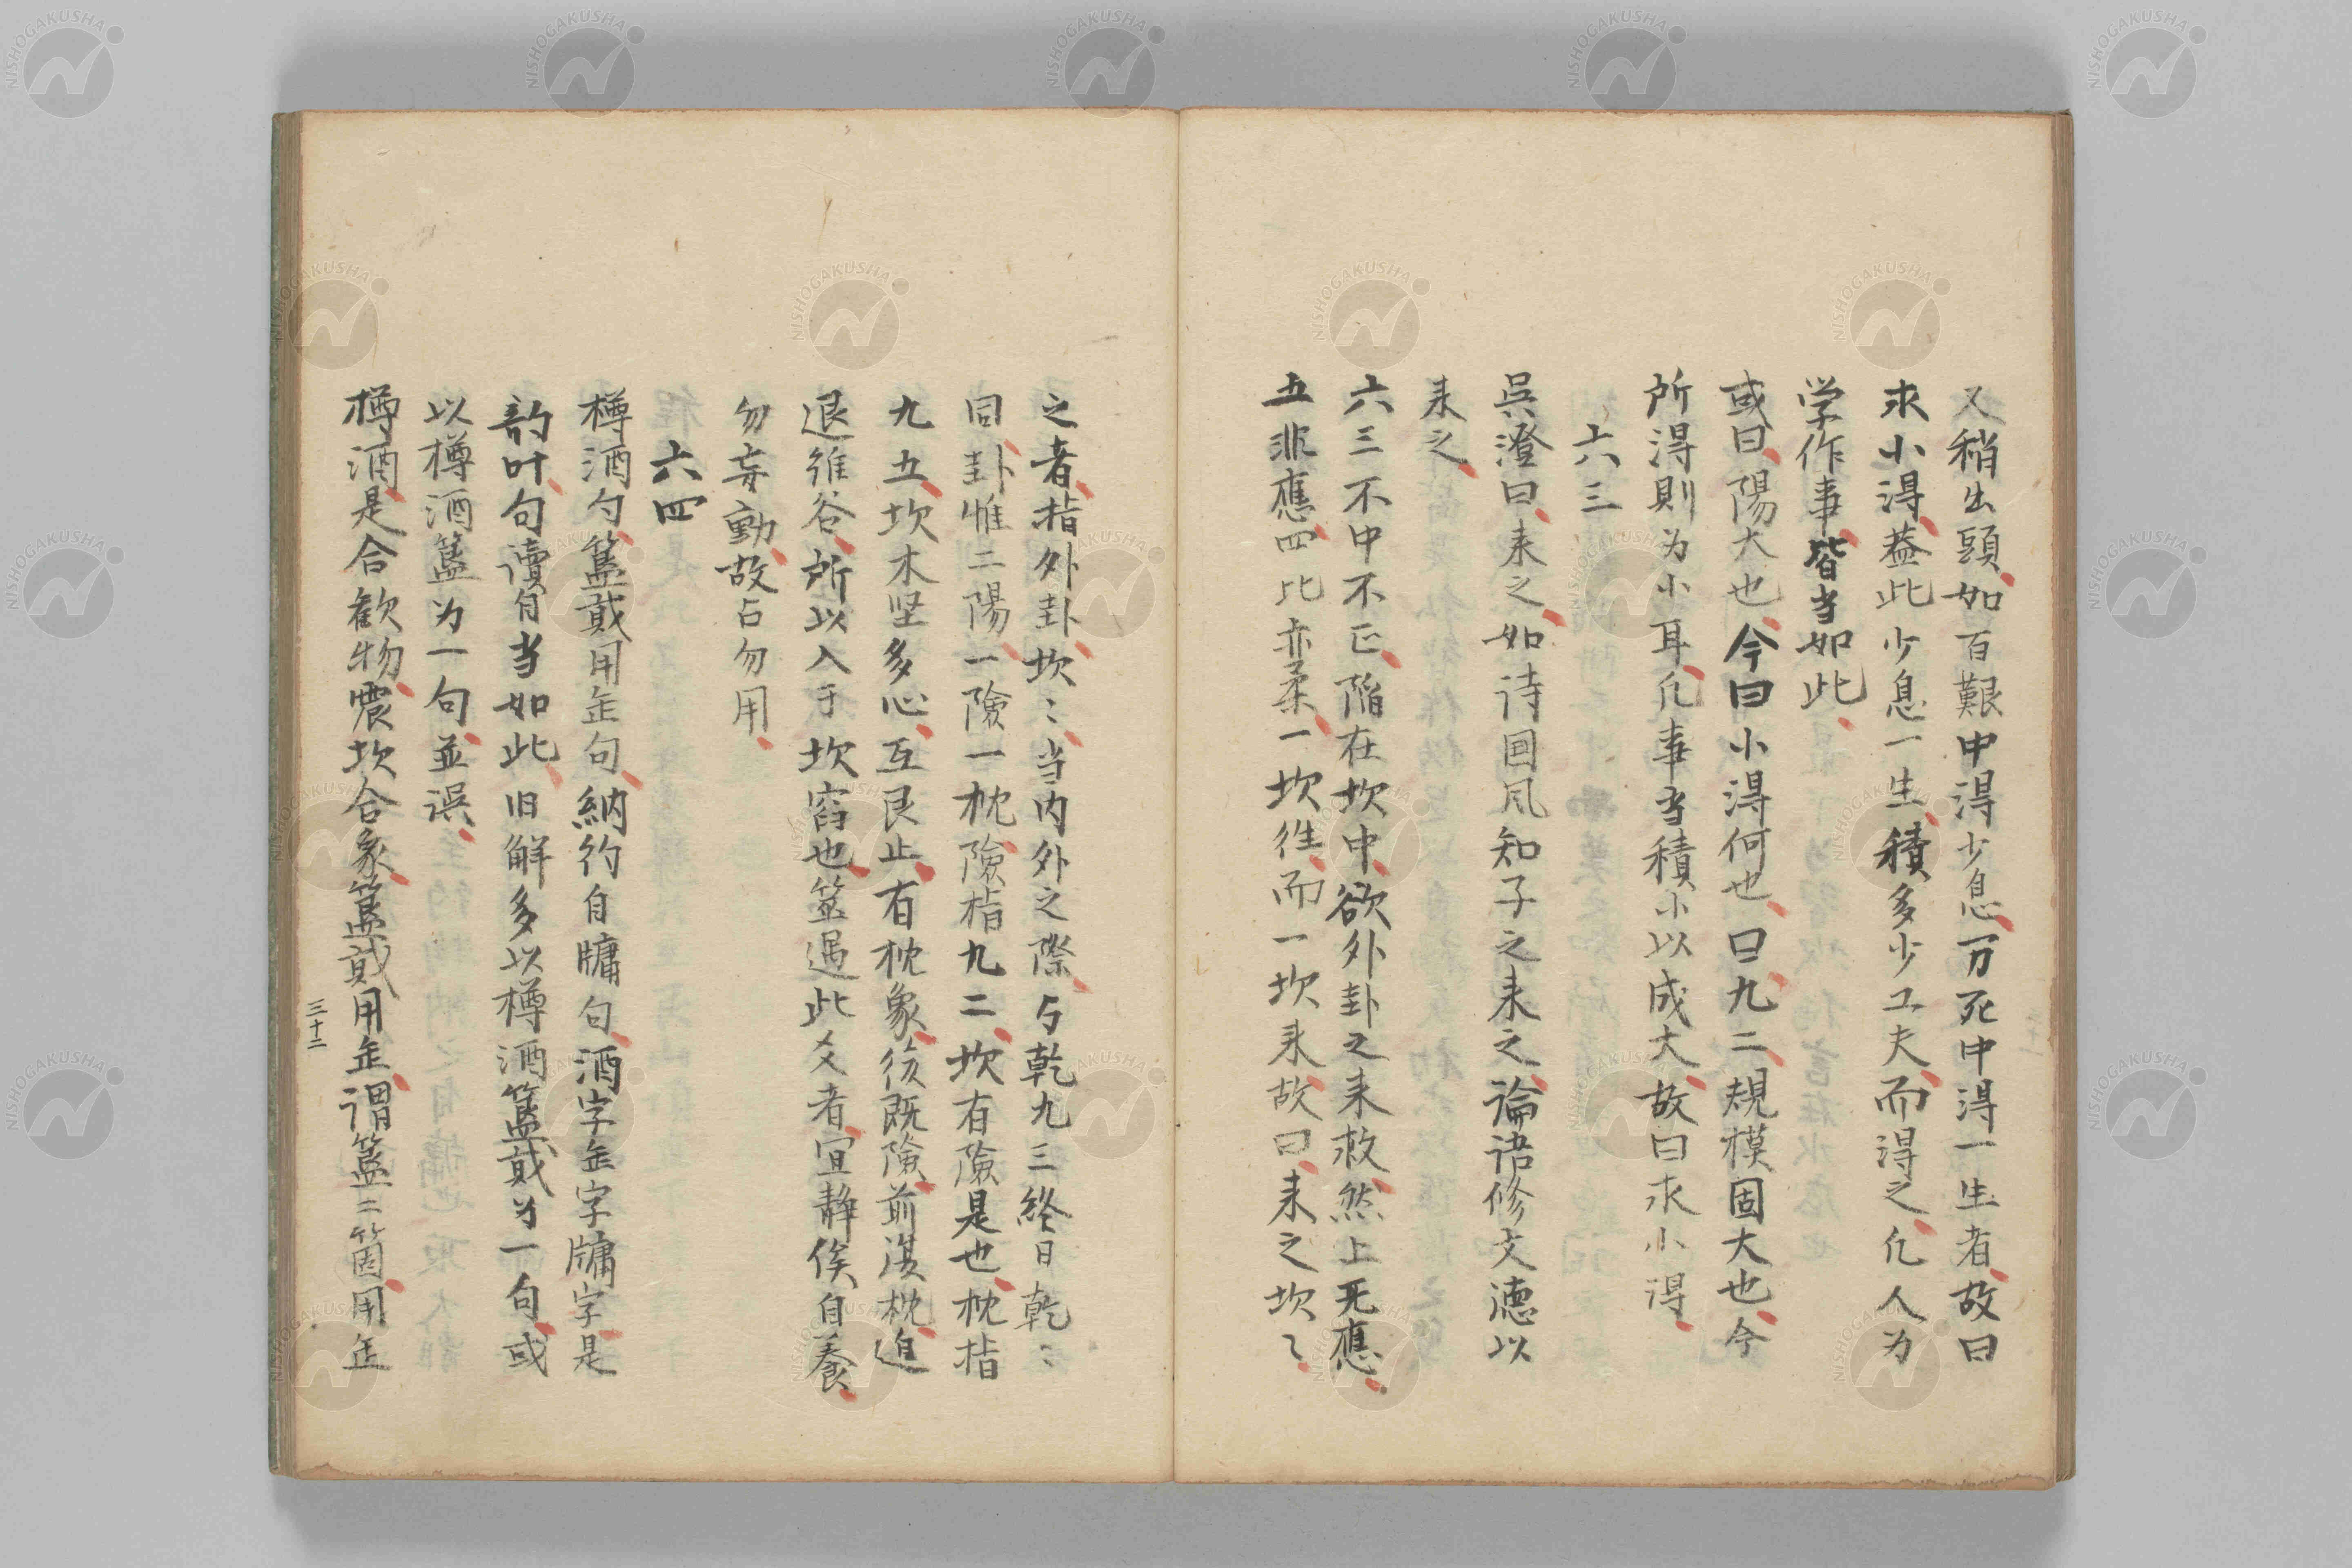 又稍出頭如百艱中得少息万死中得一生者故曰
求小得葢此少息一生積多少工夫而得之凢人为
学作事皆当如此
或曰陽大也今曰小得何也曰九二規模固大也今
所得則为小耳凢事当積小以成大故曰求小得
六三
呉澄曰来之如诗囯風知子之来之論语修文德以
来之
六三不中不正陥在坎中欲外卦之来救然上无應
五非應四比亦柔一坎徃而一坎来故曰来之坎〻
之者指外卦坎〻当内外之際与乾九三終日乾〻
同卦惟二陽一險一枕險指九二坎有險是也枕指
九五坎木坚多心互艮止有枕象後既險前復枕迫
退維谷所以入于坎窞也筮遇此爻者宜静俟自養
勿妄動故占勿用
六四
樽酒句簋貳用缶句納約自牖句酒字缶字牖字是
韵叶句讀自当如此旧解多以樽酒簋貳为一句或
以樽酒簋为一句並误
樽酒是合歓物震坎合象簋貳用缶謂簋二箇用缶
三十二
NISHOGAKUSHA